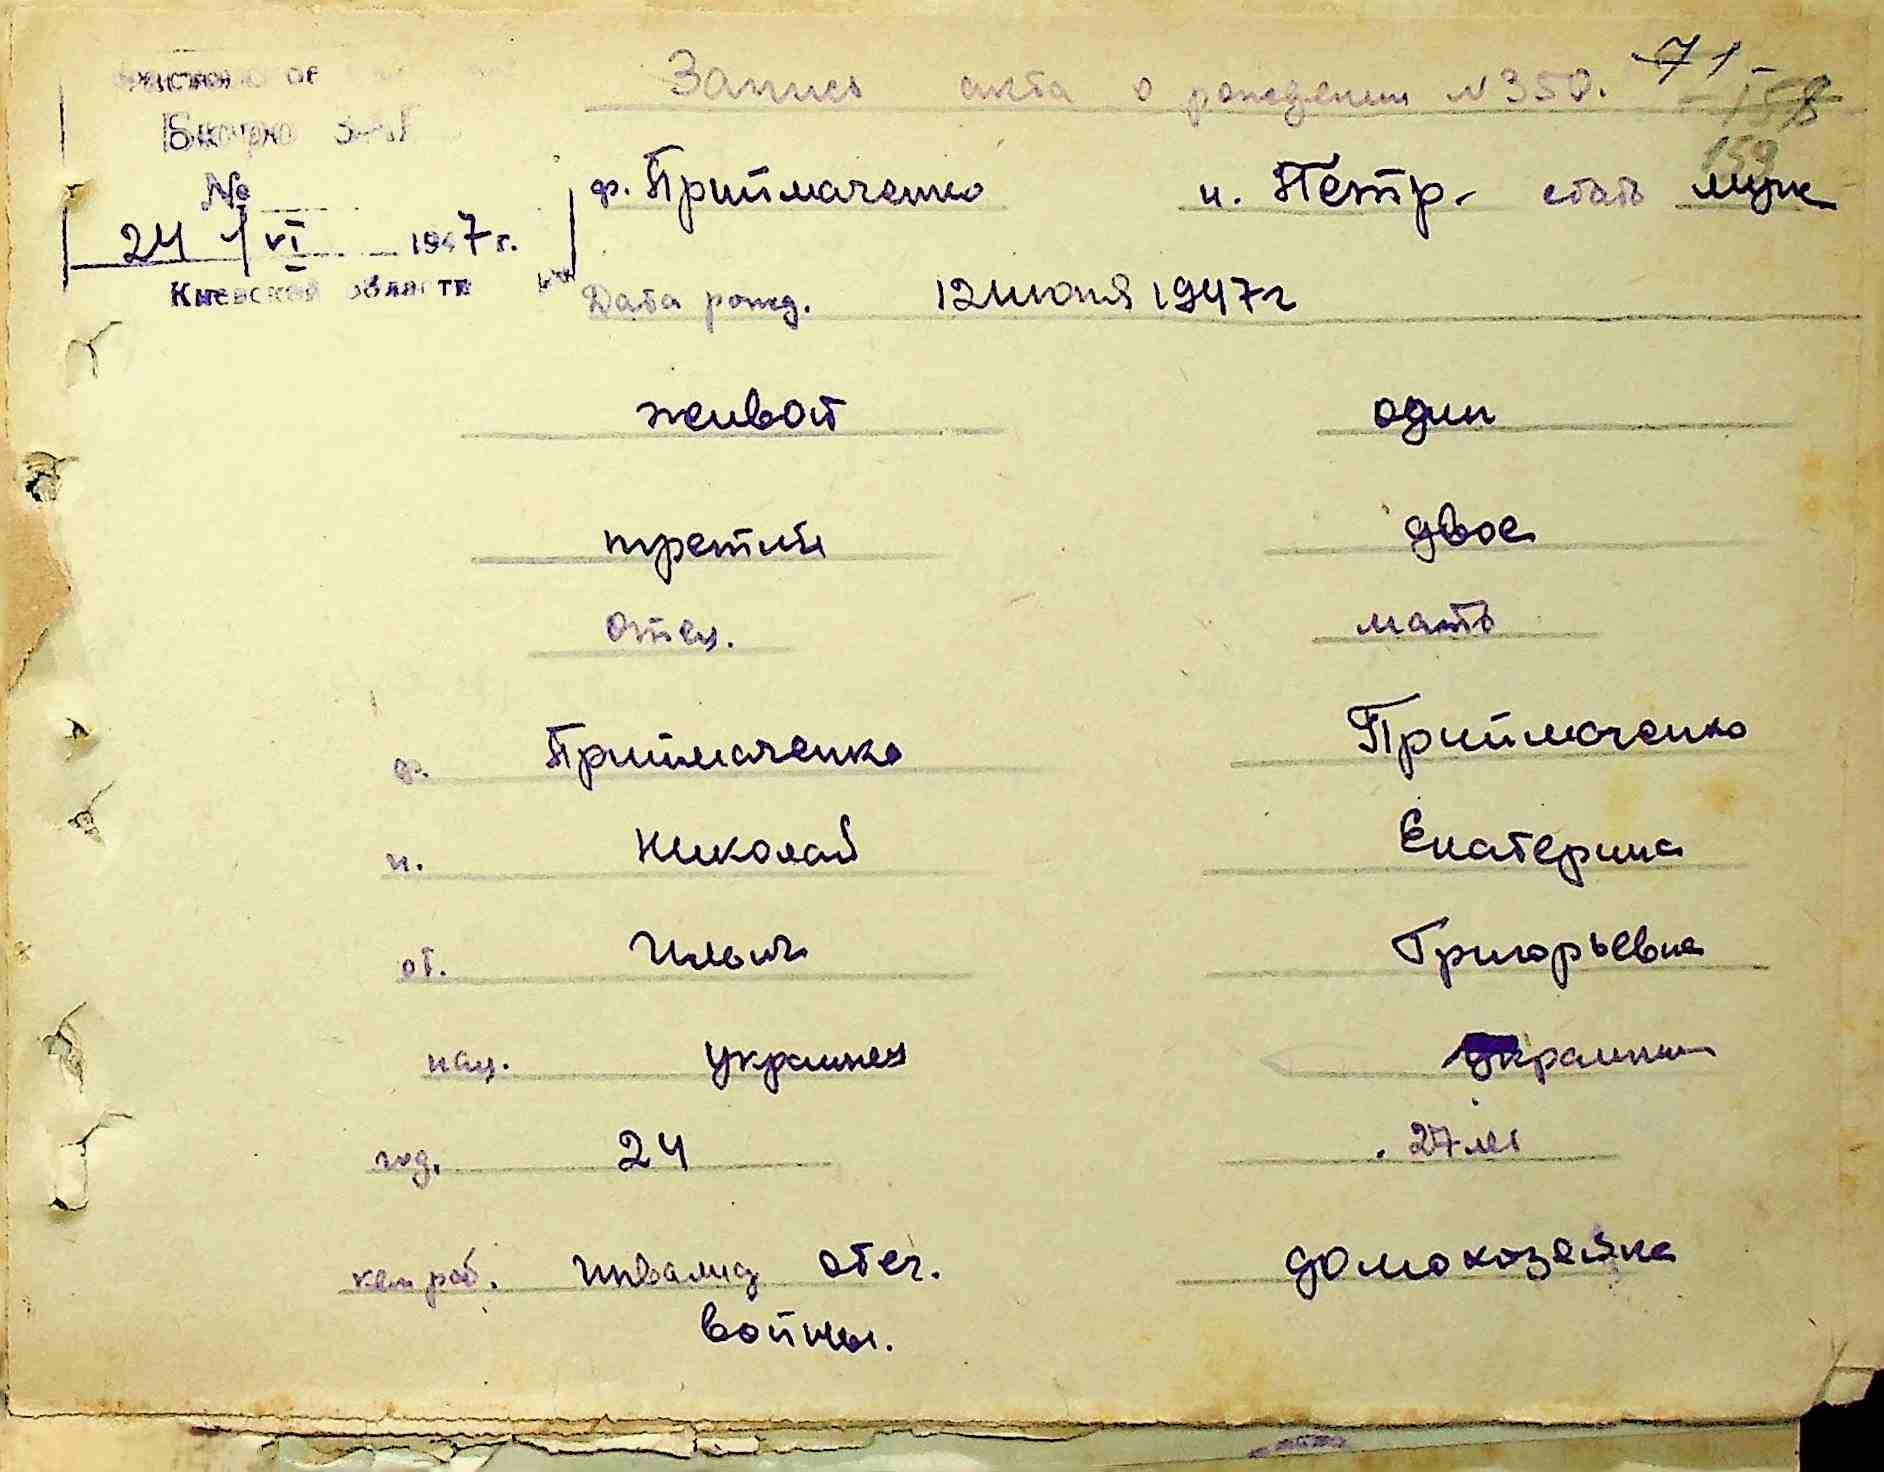 Запись акта о рождении N 350. 71
158
159
Бюро
№
24 VI 1947 г.
Киевской области
ф. Приймаченко и. Петр. стать муж
Дата рожд. 12 июня 1947 г
живой один
третий двое
Отец. мать
ф. Приймаченко Приймаченко
и. Николай Екатерина
от. Ильич Григорьевна
нац. Украинец украинка
год. 24 27 лет
кем раб. инвалид отеч. домохозяйка
войны.